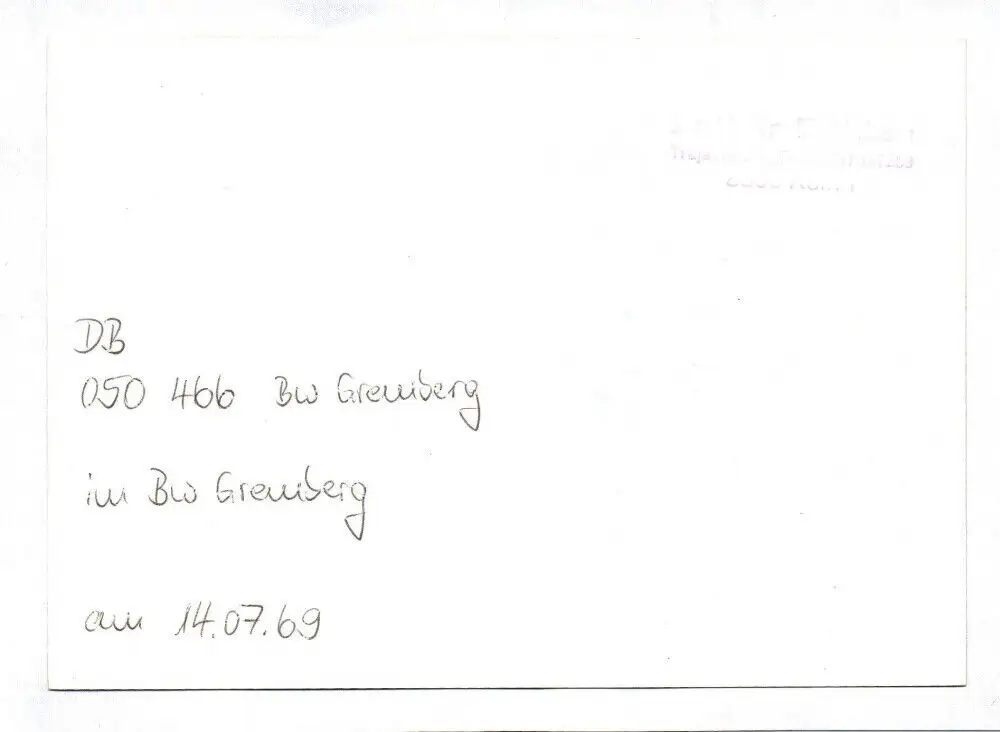 DB
050 466 Bw Gremberg
im Bw Gremberg
am 14.07.69